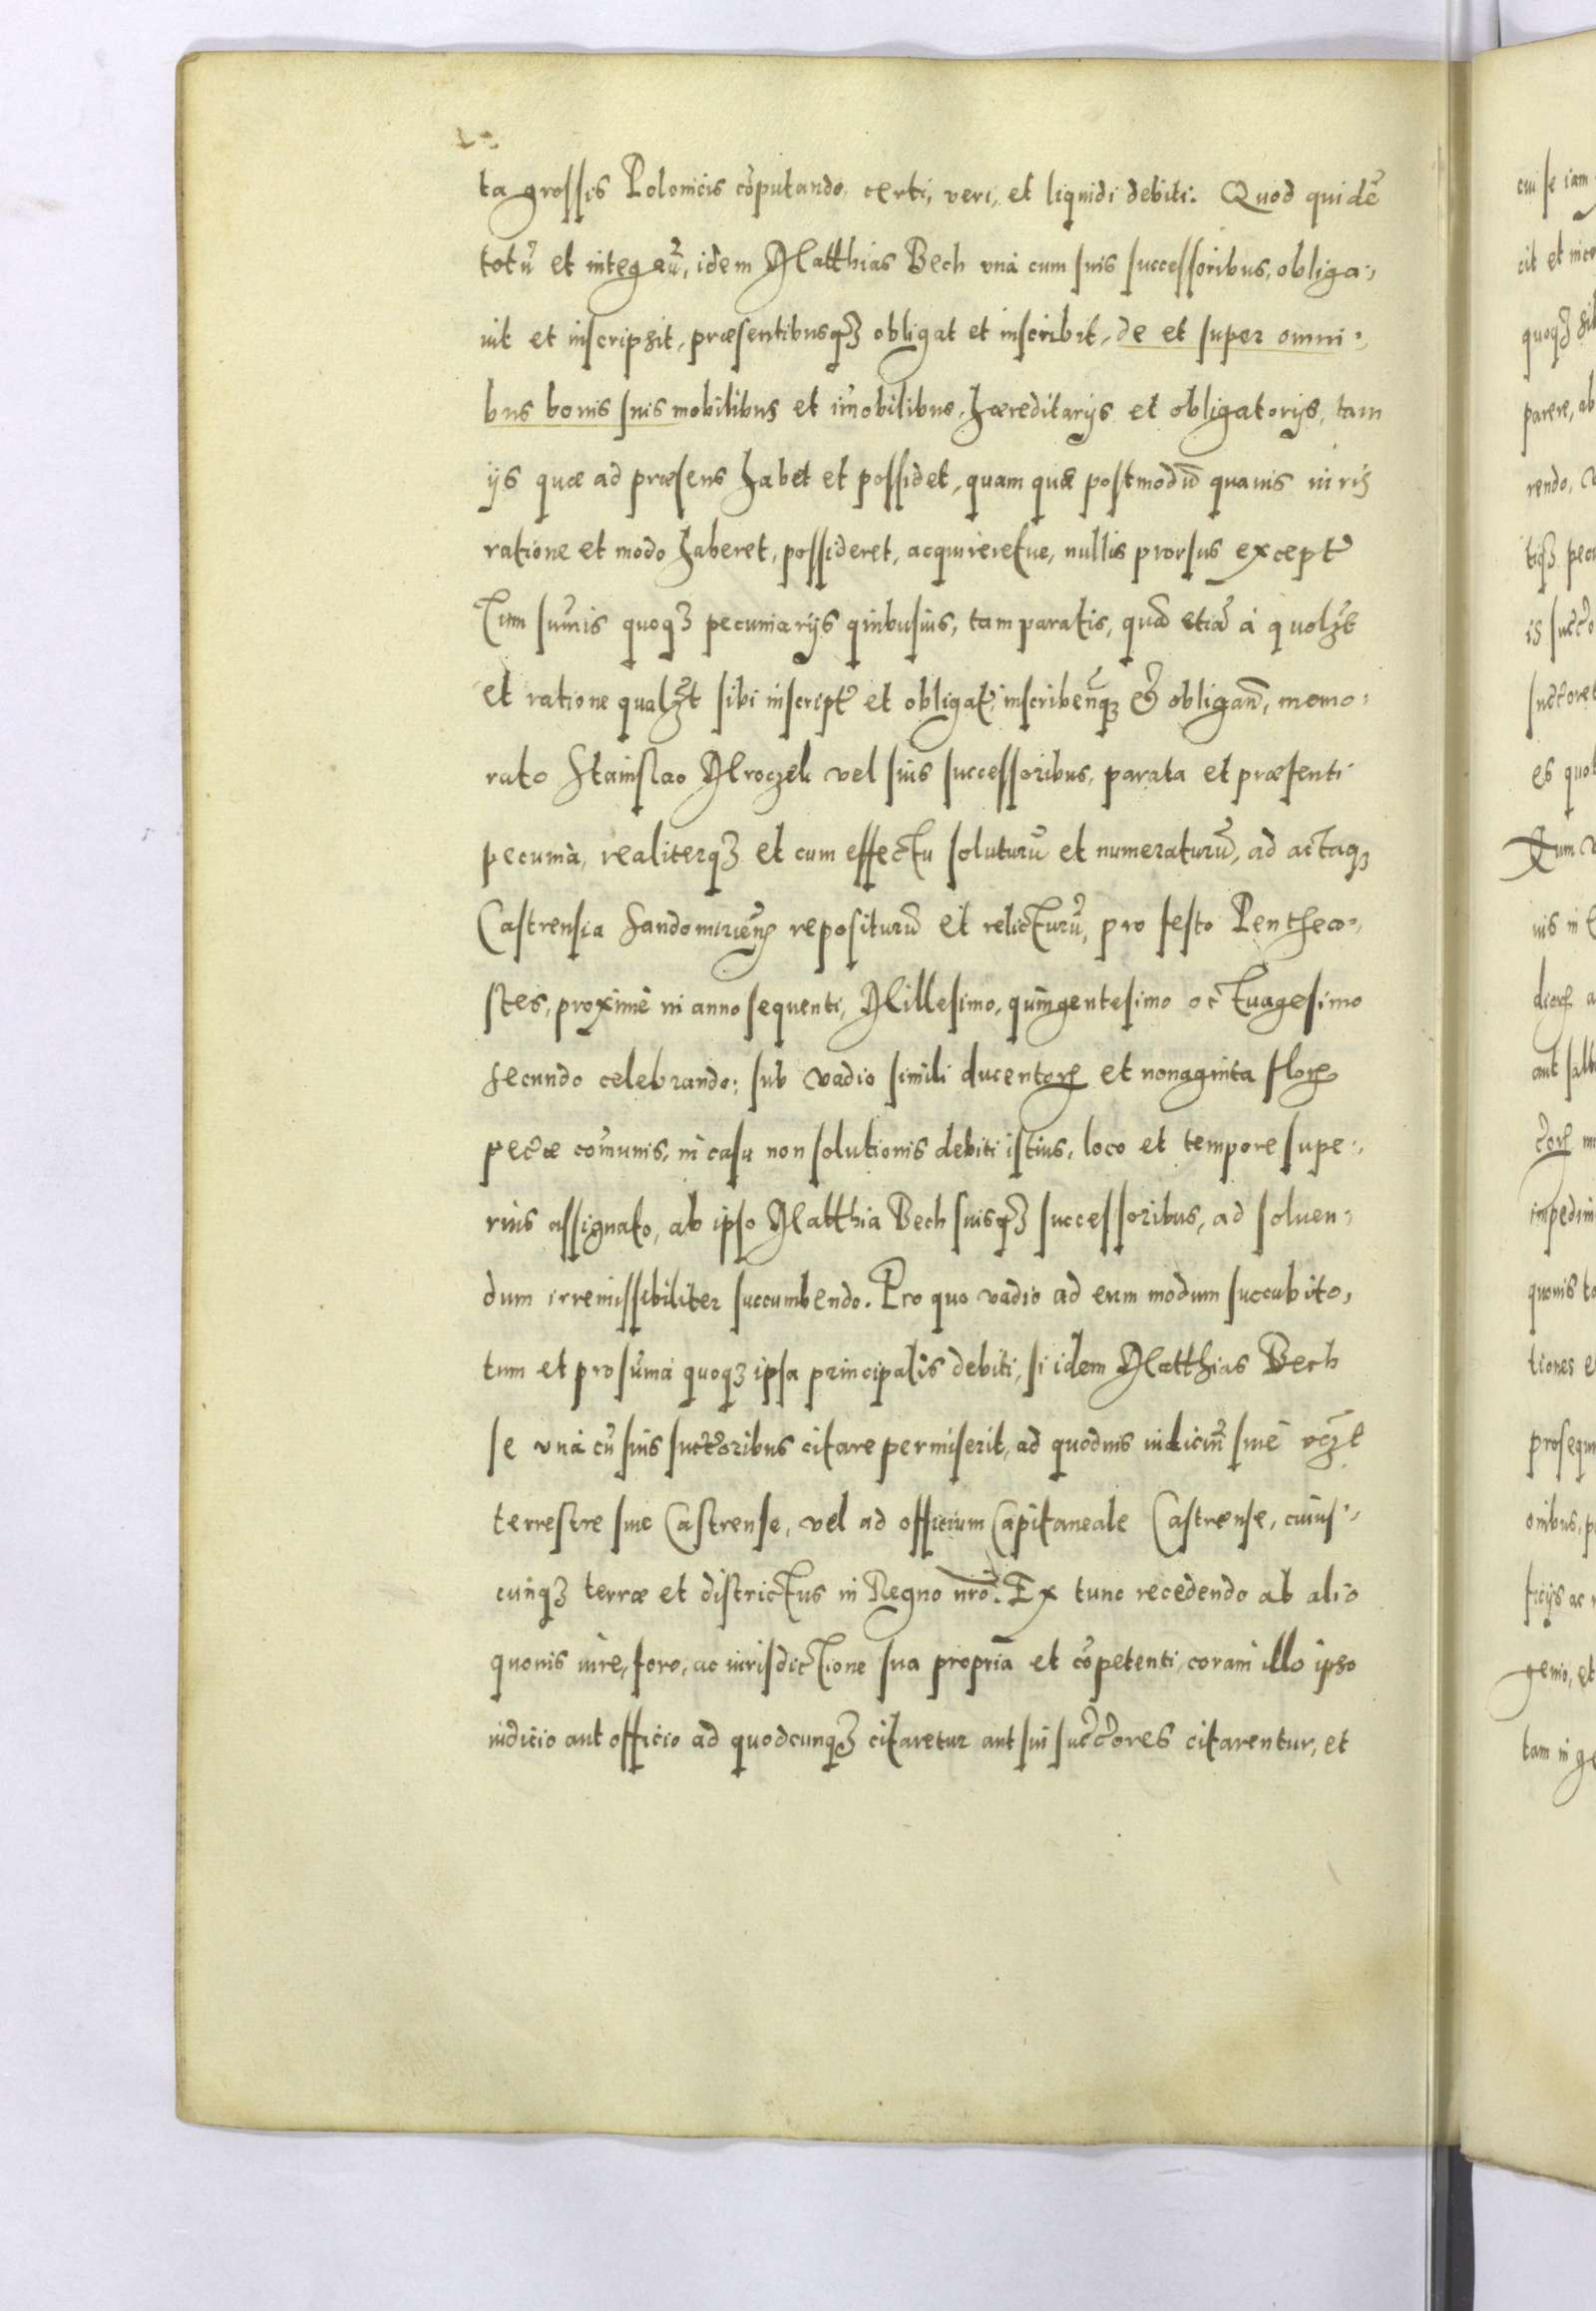 ta grossis Polonicis cōputando, certi, veri, et liquidi debiti. Quod quidē
totū et integrū, idem Matthias Bech unà cum suis successoribus, obliga-
uit et inscripsit, præsentibusq3 obligat et inscribit, de et super omni-
bus bonis suis mobilibus et im̄obilibus, hæreditarijs et obligatorijs, tam
ijs quæ ad præsens habet et possidet, quam quæ postmodū quauis iuris
ratione et modo haberet, possideret, acquireretue, nullis prorsus except̄
Cum sum̄is quoq3 pecuniarijs quibusuis, tam paratis, quā etiā à quolzt
et ratione qualzt sibi inscript̄ et obligat̄, inscribenq3 & obligan̄, memo-
rato Stanislao Mroczek vel suis successoribus, parata et præsenti
pecunia, realiterq3 et cum effectu soluturū et numeraturū, ad actaq3
Castrensia Sandomirien̄ repositurū et relicturū, pro festo Pentheco-
stes, proximè in anno sequenti, Millesimo, quingentesimo octuagesimo
secundo celebrando: sub vadio simili ducentoꝝ et nonaginta floꝝ
pecc̄æ com̄unis, in casu non solutionis debiti istius, loco et tempore supe-
rius assignato, ab ipso Matthia Bech suisq3 successoribus, ad soluen-
dum irremissibiliter succumbendo. Pro quo vadio ad eum modum succubito,
tum et pro sum̄a quoq3 ipsa principalis debiti, si idem Matthias Bech
se unà cū suis succ̄toribus citare permiserit, ad quoduis iudiciū siue
terrestre siue Castrense, vel ad officium Capitaneale Castrense, cuius-
cunq3 terræ et districtus in Regno nrō. Ex tunc recedendo ab alio
quouis iure, foro, ac iurisdictione sua propria et cōpetenti, coram illo ipso
iudicio aut officio ad quodcunq3 citaretur aut sui succ̄ores citarentur, et